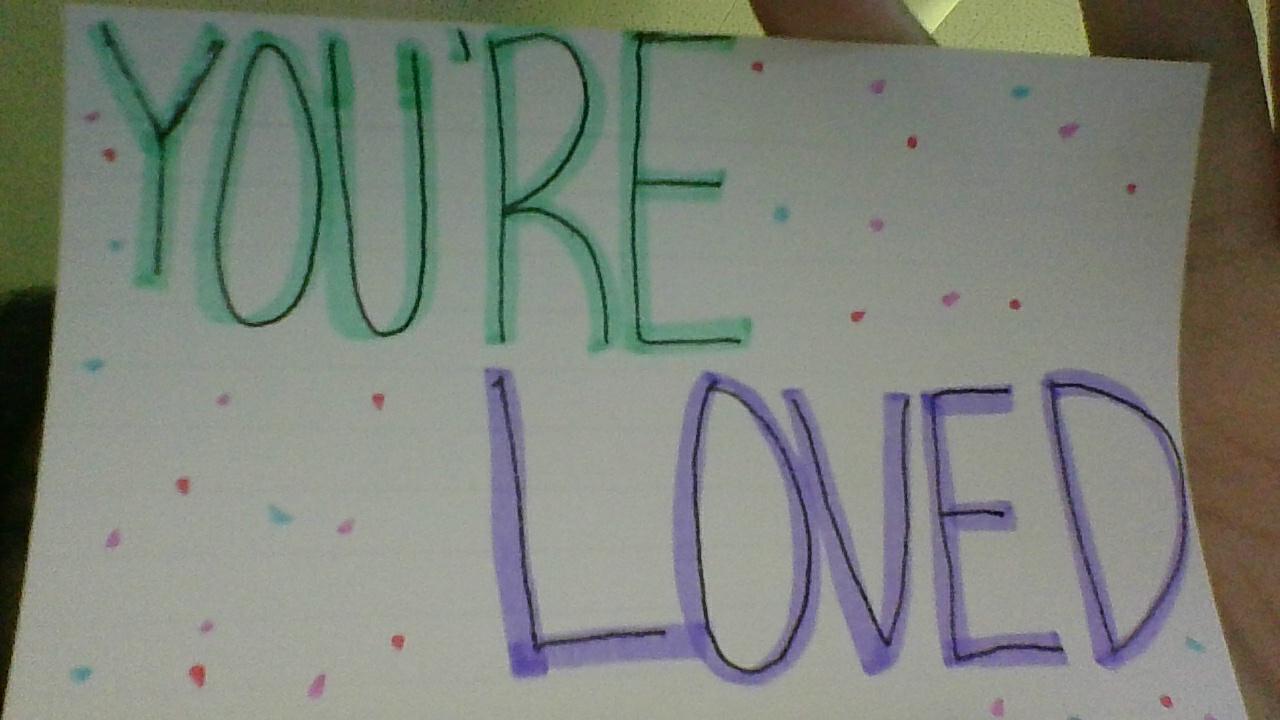 YOU'RE
LOVED